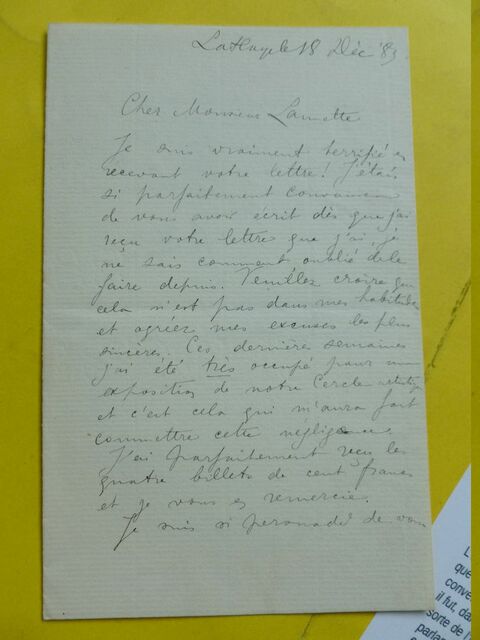 La Haye le 18 Déc '89.
Cher Monsieur Lamette
Je suis vraiment terrifié en
recevant votre lettre! J'étais
si parfaitement convaincu
de vous avoir écrit dès que j'ai
reçu votre lettre que j'ai, je
ne sais comment oublié de le
faire depuis. Veuillez croire que
cela n'est pas dans mes habitudes
et agréez mes excuses les plus
sincères. Ces dernières semaines
j'ai été très occupé pour une
exposition de notre Cercle artistique
et c'est cela qui m'aura fait
commettre cette négligence.
J'ai parfaitement reçu les
quatre billets de cent francs
et je vous en remercie.
Je suis si persuadé de vous
L
que
conve
il fut, da
sorte de l'
parlan